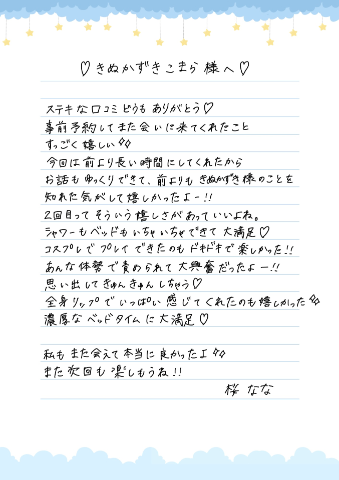 ♡きぬかずきこまら様へ♡
ステキな口コミどうもありがとう♡
事前予約してまた会いに来てくれたこと
すっごく嬉しい✨
今回は前より長い時間にしてくれたから
お話もゆっくりできて、前よりもきぬかずき様のことを
知れた気がして嬉しかったよー!!
2回目ってそういう嬉しさがあっていいよね。
シャワーもベッドもいちゃいちゃできて大満足♡
コスプレでプレイできたのもドキドキで楽しかった!!
あんな体勢で責められて大興奮だったよー!!
思い出してきゅんきゅんしちゃう♡
全身リップでいっぱい感じてくれたのも嬉しかった✨
濃厚なベッドタイムに大満足♡
私もまた会えて本当に良かったよ✨
また次回も楽しもうね!!
桜なな